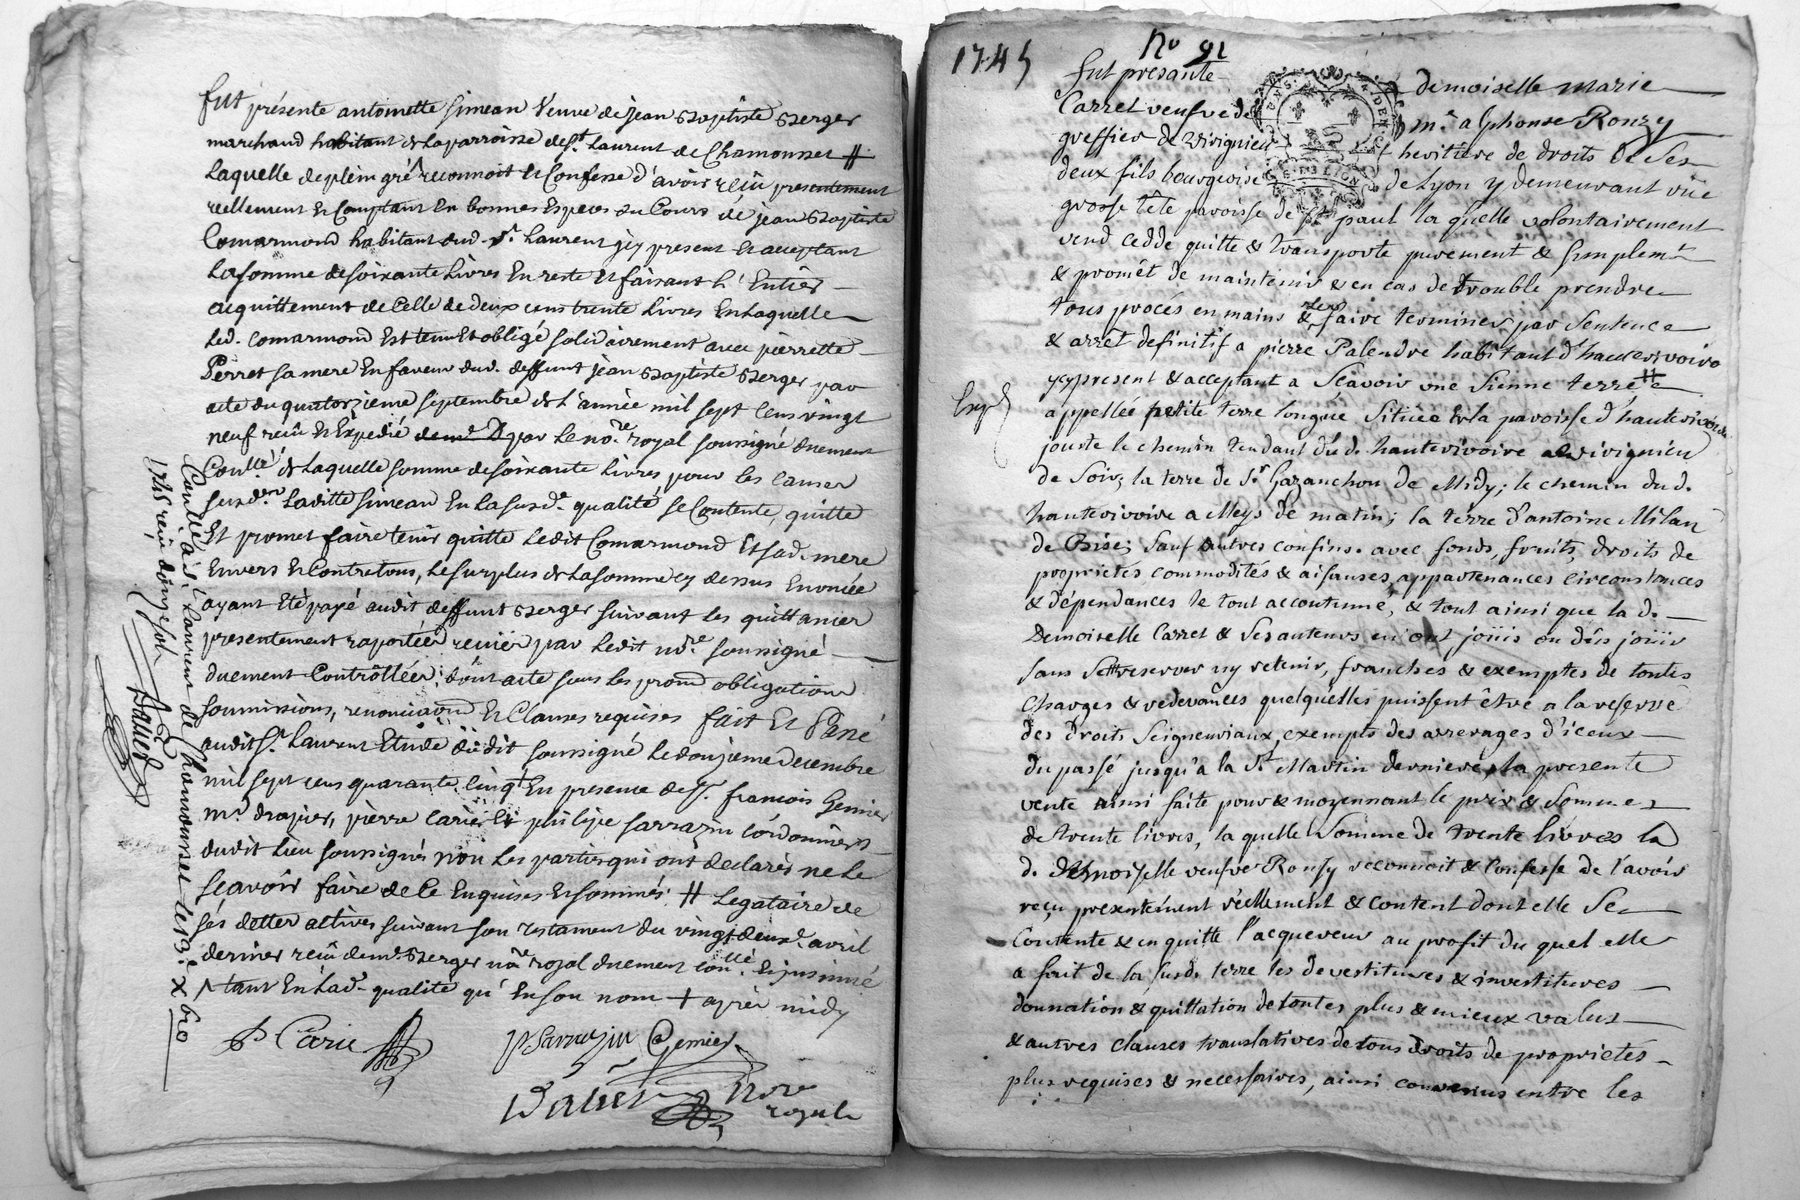 fut présente antoinette simean veuve de jean Baptiste Berger
marchand habitant de la parroisse de st. Laurent de Chamousset #
Laquelle de plein gré reconnoit et Confesse d'avoir reçu presentement
reellement et Comptant en bonnes especes du Cours de jean Baptiste
Comarmond habitant dud. st. Laurent jcy present et acceptant
La somme de soixante Livres en reste et faisant l'Entier
acquittement de Celle de deux cens trente Livres En Laquelle
Led. Comarmond est tenu et obligé solidairement avec pierrette
Perret sa mere en faveur dud. deffunt jean Baptiste Berger par
acte du quatorzieme septembre de l'année mil sept Cens vingt
neuf reçu et Expedié par Le nore. royal soussigné duement
Conllé. de Laquelle somme de soixante Livres pour les causes
susd. Laditte simean en La susd. qualité se Contente, quitte
et promet faire tenir quitte Ledit Comarmond et sad. mere
Envers et Contre tous, Le surplus de La somme cy dessus enoncée
ayant été payé audit deffunt Berger suivant les quittances
presentement raportées reçues par Ledit nore. soussigné
duement Controllées; dont acte sous les prom obligations
soumissions, renonciaons et Clauses requises fait et Passé
audit st. Laurent Etude dudit soussigné Le douzieme decembre
mil sept cens quarante Cinq + En presence de sr. françois Genier
md. drapier, pierre Carié et philipe sarrazin Cordonniers
dudit Lieu soussignés non Les parties qui ont déclarés ne Le
sçavoir faire de Ce Enquises et sommés. # Legataire de
ses dettes actives suivant son testament du vingt deuxe. avril
dernier reçu de me. Berger nore royal duement conllé. et insinué
^ tant en Lad. qualité qu'en son nom + après midy
P Carié
P Sarrazin Genier
Nore
royale
Conllé a st. Laurent de Chamousset le 13e xbre
1745 reçu douze sols
1745
No 91
fut presante demoiselle marie
Carret veufve de mr. alphonse Ronzy
greffier de virignieu heritiere de droits de ses
deux fils bourgeoise de Lyon y demeurant rüe
grosse tête paroisse de st paul la quelle volontairement
vend cedde quitte & transporte purement & simplemt
& promêt de maintenir & en cas de trouble prendre
tous procés en mains & les faire terminer par sentence
& arret definitif a pierre Palendre habitant d'hauterivoire
ycy present & acceptant a Scavoir une sienne terre #
appellée petite terre longue Située en la paroisse d'hauterivoire
Expé
jouste le chemin tendant dud. hauterivoire a virignieu
de Soir; la terre de sr. Gazanchon de Midy; le chemin dud.
hauterivoire a Meys de matin; la terre d'antoine Milan
de Bise; Sauf autres confins. avec fonds, fruits, droits de
proprietés commodités & aisances, appartenances circonstances
& dépendances le tout accoutumé, & tout ainsi que la d.
Demoiselle Carret & Ses auteurs en ont joüis ou dûs joüir
sans s'en reserver ny retenir, franches & exemptes de toutes
charges & redevances quelquelles puissent être a la reserve
des droits Seigneuriaux, exempts des arrerages d'iceux
du passé jusqu'a la st. Martin derniere, la presente
vente ainsi faite pour & moyennant le prix & somme
de trente livres, la quelle Somme de trente livres la
d. demoiselle veufve Ronzy reconnoit & Confesse de l'avoir
reçu presentement réellement & content dont elle Se
Contente & en quitte l'acquereur au profit du quel elle
a fait de la susd. terre les devestitures & investitures
donnation & quittation de toutes plus & mieux values
& autres clauses translatives de tous droits de proprietés
plus requises & necessaires, ainsi convenus entre les